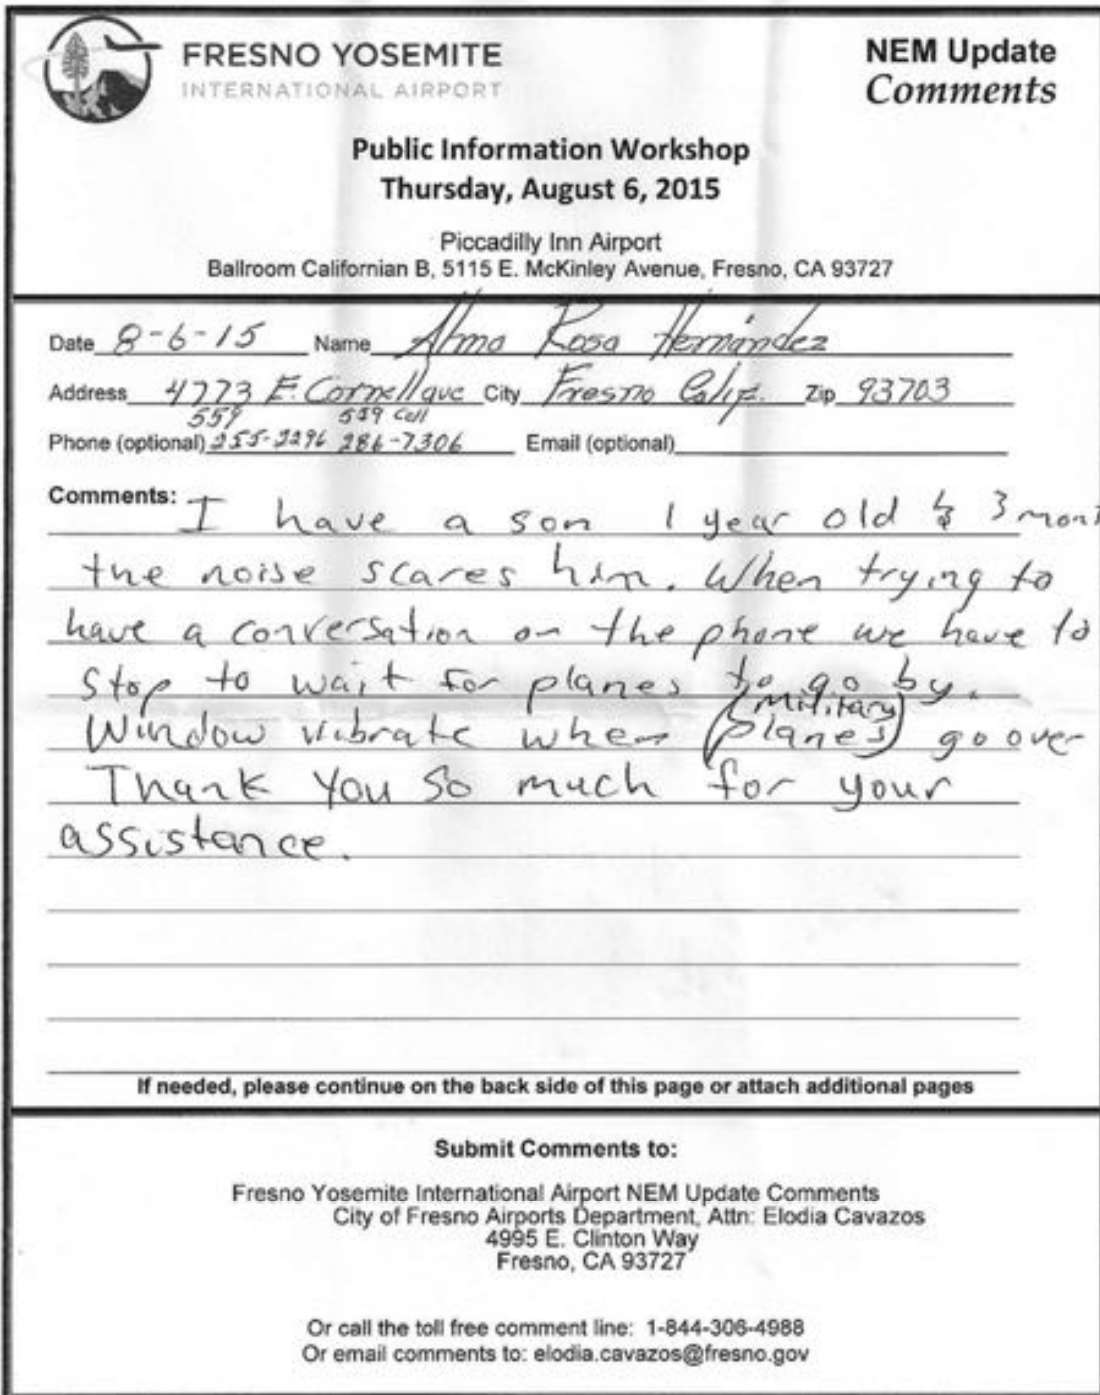 FRESNO YOSEMITE
INTERNATIONAL AIRPORT
NEM Update
Comments
Public Information Workshop
Thursday, August 6, 2015
Piccadilly Inn Airport
Ballroom Californian B, 5115 E. McKinley Avenue, Fresno, CA 93727
Date 8-6-15 Name Alma Rosa Hernández
Address 4773 E. Cornell ave City Fresno Calif. Zip 93703
559 559 Cell
Phone (optional) 255-2296 286-7306 Email (optional)
Comments: I have a son 1 year old & 3 mont
the noise scares him. When trying to
have a conversation on the phone we have to
stop to wait for planes to go by.
(military)
Window vibrate when (planes) go over
Thank You so much for your
assistance.
If needed, please continue on the back side of this page or attach additional pages
Submit Comments to:
Fresno Yosemite International Airport NEM Update Comments
City of Fresno Airports Department, Attn: Elodia Cavazos
4995 E. Clinton Way
Fresno, CA 93727
Or call the toll free comment line: 1-844-306-4988
Or email comments to: elodia.cavazos@fresno.gov